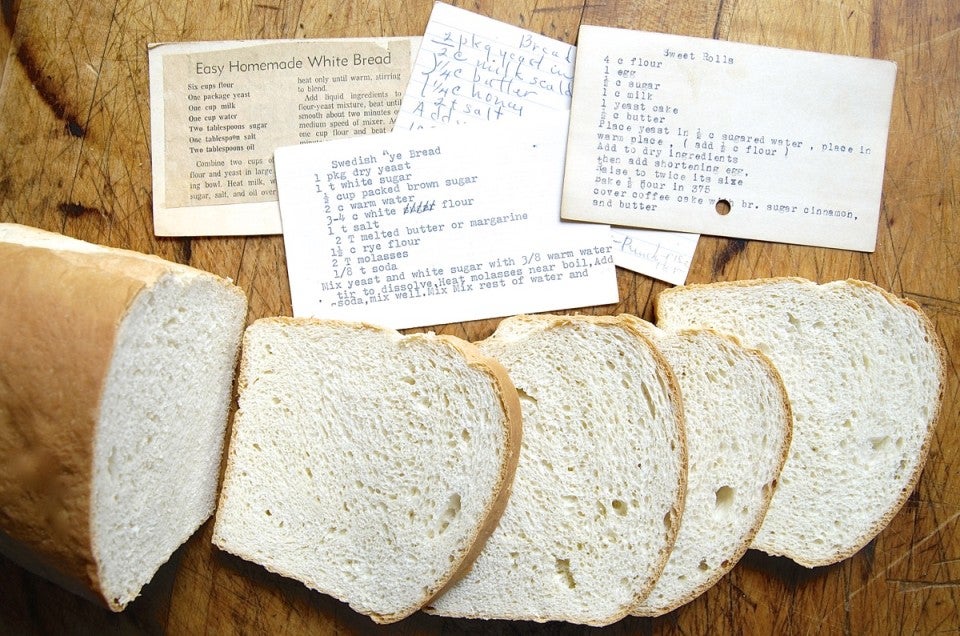 Easy Homemade White Bread
Six cups flour
One package yeast
One cup milk
One cup water
Two tablespoons sugar
One tablespoon salt
Two tablespoons oil
Combine two cups of
flour and yeast in large
ing bowl. Heat milk, w
sugar, salt, and oil over
heat only until warm, stirring
to blend.
Add liquid ingredients to
flour-yeast mixture, beat until
smooth about two minutes o
medium speed of mixer. A
one cup flour and beat
minute
Bread
2 pkg yeast in
2 c milk scald
3/4 c butter
1/4 c honey
2 t salt
Add
Swedish "ye Bread
1 pkg dry yeast
1 t white sugar
cup packed brown sugar
2 c warm water
3-4 c white flour
1 t salt
2 T melted butter or margarine
1½ c rye flour
2 T molasses
1/8 t soda
Mix yeast and white sugar with 3/8 warm water
tir to dissolve.Heat molasses near boil,Add
soda,mix well.Mix Mix rest of water and
Sweet Rolls
4 c flour
1 egg
c sugar
c milk
1 yeast cake
c butter
Place yeast in ½ c sugared water , place in
warm place , ( add ½ c flour )
Add to dry ingredients
then add shortening egg,
Raise to twice its size
bake ½ hour in 375
cover coffee cake with br. sugar cinnamon,
and butter